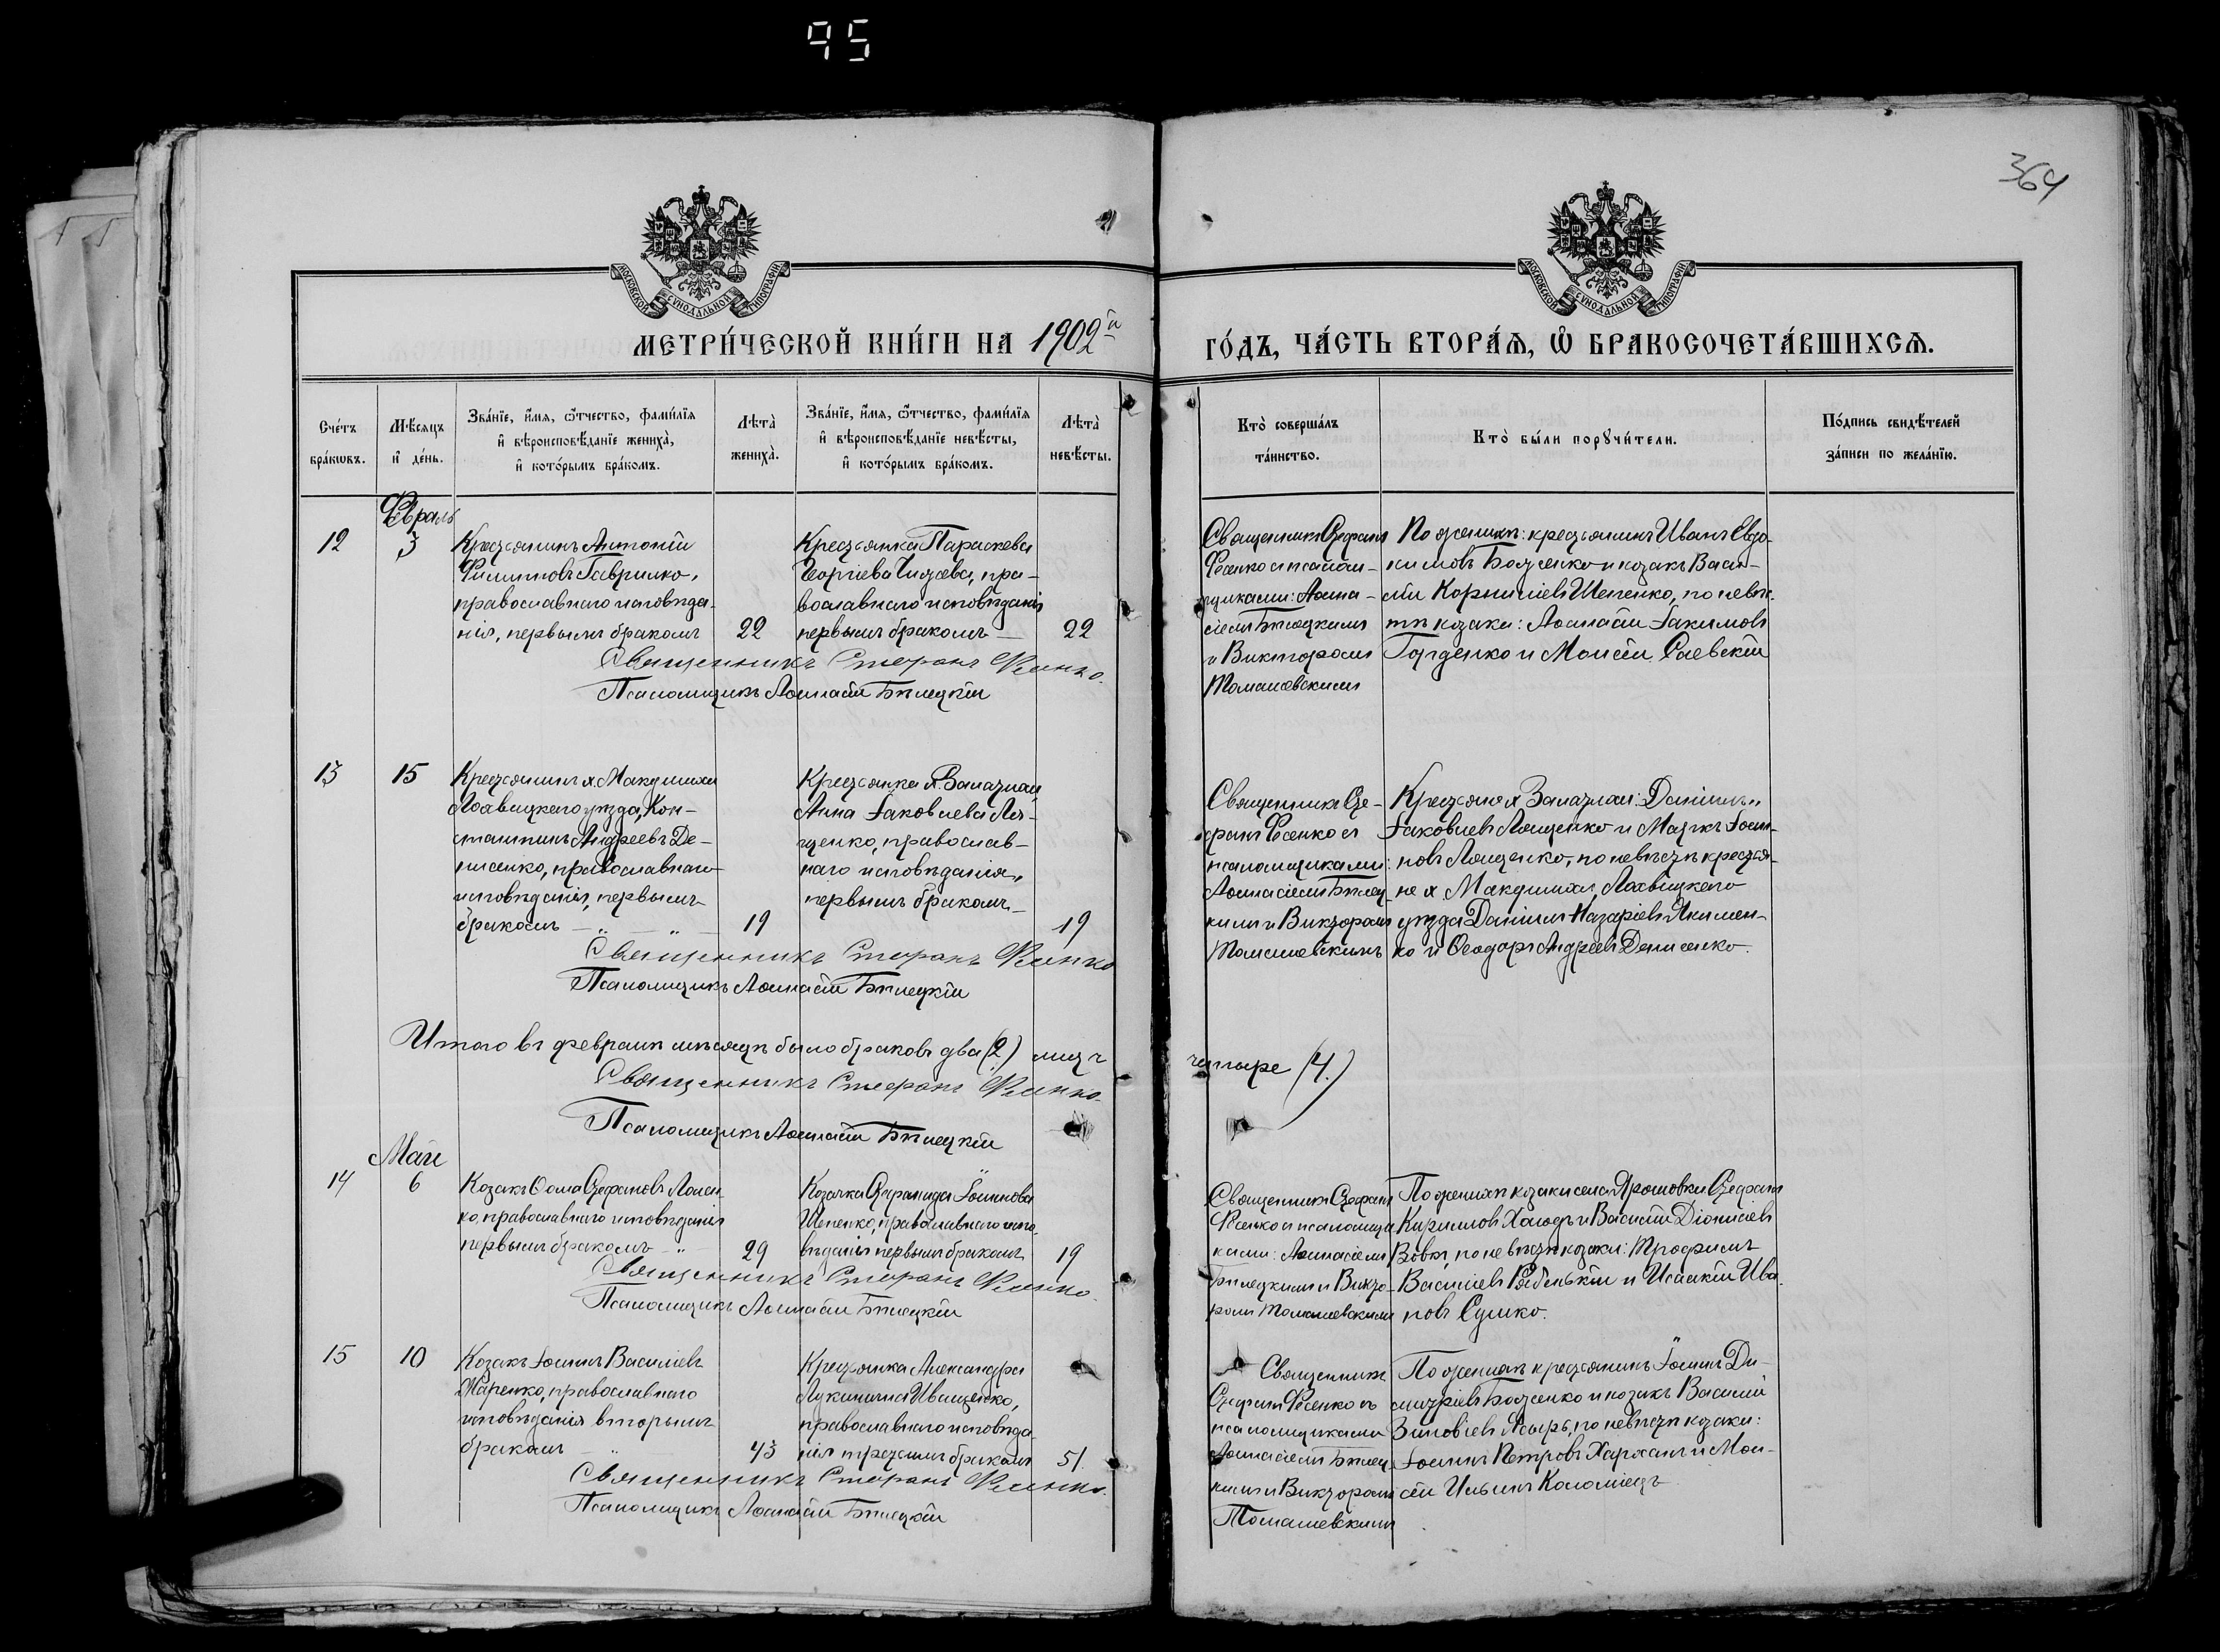 95
364
МОСКОВСКОЙ СУНОДАЛЬНОЙ ТИПОГРАФІИ
МОСКОВСКОЙ СУНОДАЛЬНОЙ ТИПОГРАФІИ
МЕТРИ́ЧЕСКОЙ КНИ́ГИ НА 1902й
ГО́ДЪ, ЧА́СТЬ ВТОРА́Я, Ѡ БРАКОСОЧЕТА́ВШИХСЯ.
Сче́тъ бра́кѡвъ.
Мѣ́сяцъ и де́нь.
Зва́нїе, и́мя, ѻ́тчество, фами́лїя и вѣроисповѣ́данїе жениха̀, и кото́рымъ бра́комъ.
Лѣта̀ жениха̀.
Зва́нїе, и́мя, ѻ́тчество, фами́лїя и вѣроисповѣ́данїе невѣ́сты, и кото́рымъ бра́комъ.
Лѣта̀ невѣ́сты.
Кто̀ соверша́лъ та́инство.
Кто̀ бы́ли порꙋчи́тели.
По́дпись свидѣ́телей за́писи по жела́нїю.
Февраль
12
3
Крестьянинъ Антоній
Филиповъ Гаврилко,
православнаго исповѣда-
нія, первымъ бракомъ
22
Крестьянка Параскева
Георгіева, пра-
вославнаго исповѣданія
первымъ бракомъ
22
Священникъ Стефанъ
Фесенко съ псалом-
щиками: Аѳана-
сіемъ Бѣлецкимъ
и Викторомъ
Томашевскимъ
По женихѣ: крестьянинъ Иванъ Евдо-
кимовъ Боженко и козакъ Васи-
лій Корниліевъ Шепенко, по невѣс-
тѣ козаки: Аѳанасій Іакимовъ
Горденко и Моисей Саевскій
Священникъ Стефанъ Фесенко.
Псаломщикъ Аѳанасій Бѣлецкій
13
15
Крестьянинъ х. Макушихи
Лохвицкаго уѣзда, Кон-
стантинъ Андреевъ Де-
нисенко, православнаго
исповѣданія, первымъ
бракомъ
19
Крестьянка х.
Анна Іаковлева Ля-
щенко, православ-
наго исповѣданія,
первымъ бракомъ
19
Священникъ Сте-
фанъ Фесенко съ
псаломщиками:
Аѳанасіемъ Бѣлец-
кимъ и Викторомъ
Томашевскимъ
Крестьяне х. Даніилъ
Іаковлевъ Лященко и Маркъ Іоан-
новъ Лященко, по невѣстѣ крестья-
не х. Макушихи, Лохвицкаго
уѣзда Даніилъ Назаріевъ Якимен-
ко и Ѳеодоръ Андреевъ Денисенко.
Священникъ Стефанъ Фесенко
Псаломщикъ Аѳанасій Бѣлецкій
Итого въ февралѣ мѣсяцѣ было браковъ два (2) лицъ четыре (4.)
Священникъ Стефанъ Фесенко.
Псаломщикъ Аѳанасій Бѣлецкій
Май
14
6
Козакъ Ѳома Стефановъ
православнаго исповѣданія
первымъ бракомъ
29
Козачка Стефанида Іоаннова
Шепенко, православнаго испо-
вѣданія первымъ бракомъ
19
Священникъ Стефанъ
Фесенко съ псаломщи-
ками: Аѳанасіемъ
Бѣлецкимъ и Викто-
ромъ Томашевскимъ
По женихѣ козаки села Ярошовки Стефанъ
Кирилловъ и Василій Діонисіевъ
Вовкъ, по невѣстѣ козаки: Трофимъ
Василіевъ Рябенькій и Исаакій Ива-
новъ Сушко.
Священникъ Стефанъ Фесенко.
Псаломщикъ Аѳанасій Бѣлецкій
15
10
Козакъ Іоаннъ Василіевъ
Маренко, православнаго
исповѣданія вторымъ
бракомъ
43
Крестьянка Александра
Лукинична Иващенко,
православнаго исповѣда-
нія третьимъ бракомъ
51.
Священникъ
Стефанъ Фесенко съ
псаломщиками
Аѳанасіемъ Бѣлец-
кимъ и Викторомъ
Томашевскимъ
По женихѣ крестьянинъ Іоаннъ Ди-
митріевъ Боженко и козакъ Василій
Зиновіевъ по невѣстѣ козаки:
Іоаннъ Петровъ Харханъ и Мои-
сей Ильинъ Коломіецъ
Священникъ Стефанъ Фесенко.
Псаломщикъ Аѳанасій Бѣлецкій